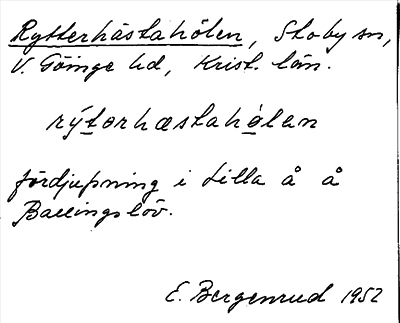 Rytterhästahölen, Stoby sn,
V. Göinge hd, Krist. län.
rýterhæstahòlan
fördjupning i Lilla å å
Ballingslöv.
E. Bergenrud 1952